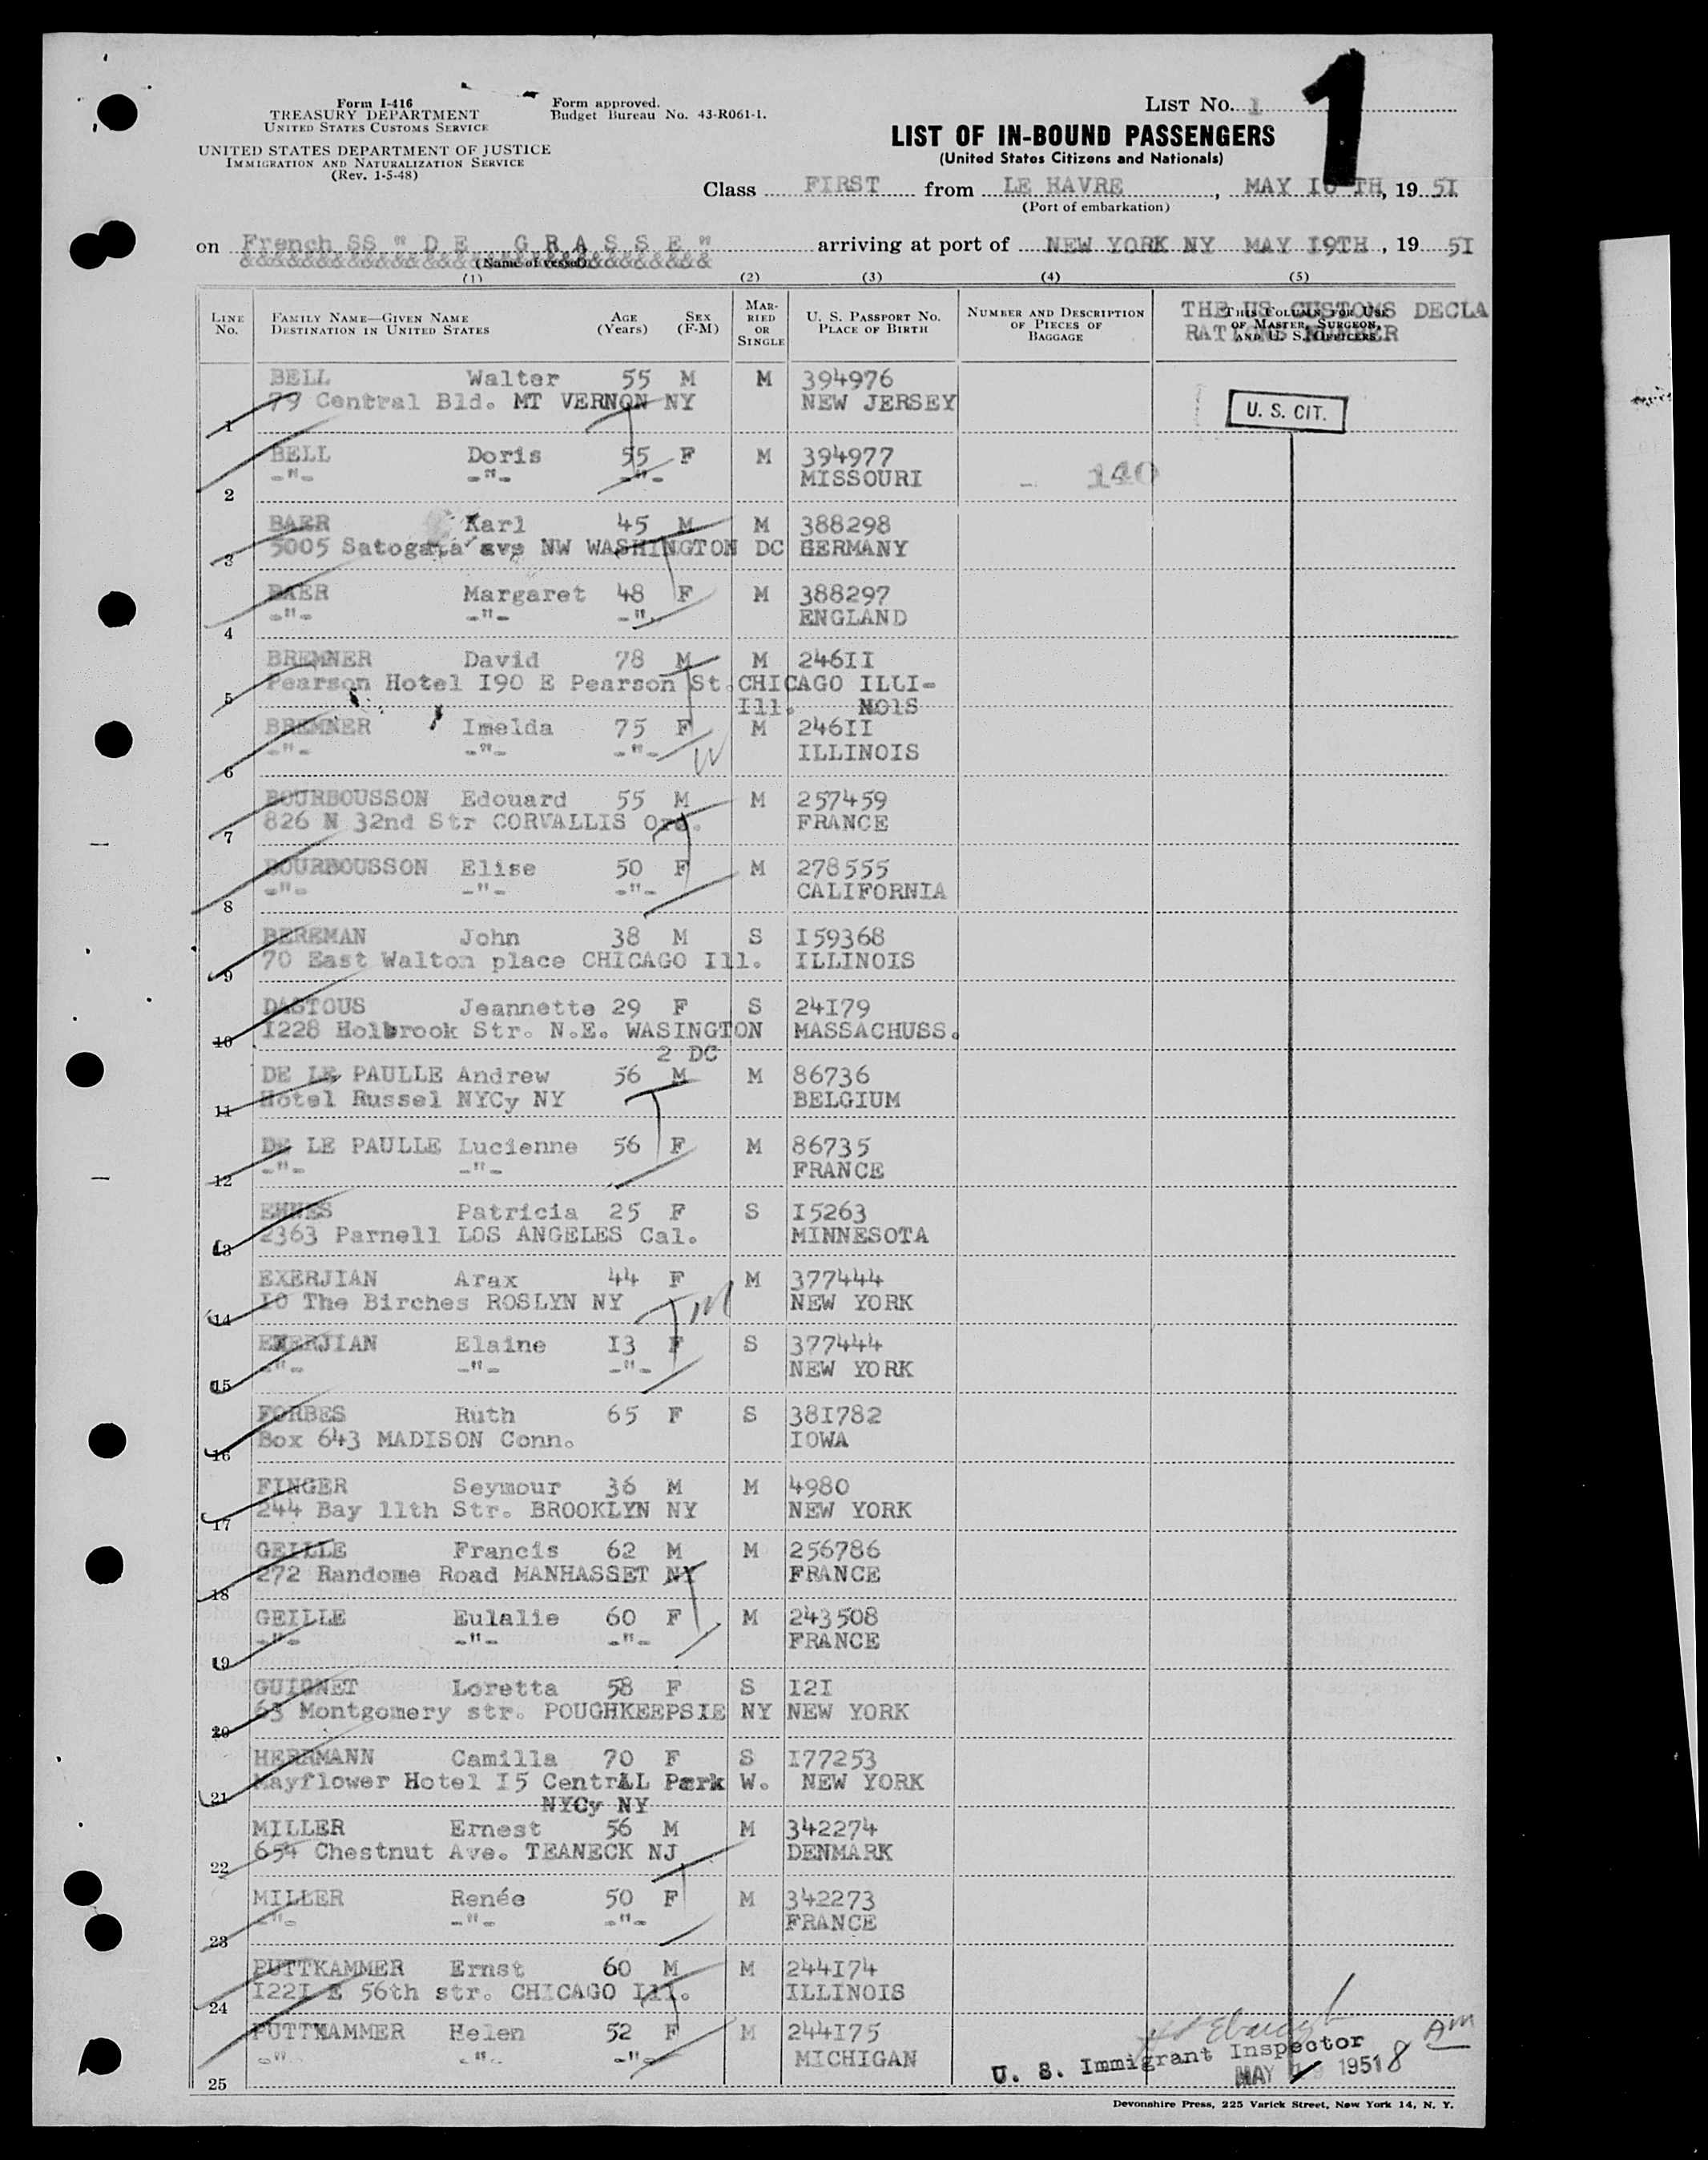 Form I-416
TREASURY DEPARTMENT
UNITED STATES CUSTOMS SERVICE
UNITED STATES DEPARTMENT OF JUSTICE
IMMIGRATION AND NATURALIZATION SERVICE
(Rev. 1-5-48)
Form approved.
Budget Bureau No. 43-R061-1.
LIST No. 1
1
LIST OF IN-BOUND PASSENGERS
(United States Citizens and Nationals)
Class FIRST from LE HAVRE, MAY 10 TH, 19 51
(Port of embarkation)
on French SS "D E G R A S S E" arriving at port of NEW YORK NY MAY 19TH, 19 51
(Name of vessel)
(1) (2) (3) (4) (5)
LINE No. FAMILY NAME—GIVEN NAME DESTINATION IN UNITED STATES AGE (Years) SEX (F-M) MARRIED OR SINGLE U. S. PASSPORT NO. PLACE OF BIRTH NUMBER AND DESCRIPTION OF PIECES OF BAGGAGE THIS COLUMN FOR USE OF MASTER, SURGEON, AND U. S. OFFICERS
THE US CUSTOMS DECLA
RATIONS NUMBER
BELL Walter 55 M M 394976
79 Central Bld. MT VERNON NY NEW JERSEY
U. S. CIT.
1
BELL Doris 55 F M 394977
-"- -"- -"- MISSOURI - 140
2
BAER Karl 45 M M 388298
5005 Satogata ave NW WASHINGTON DC GERMANY
3
BAER Margaret 48 F M 388297
-"- -"- -"- ENGLAND
4
BREMNER David 78 M M 246II
Pearson Hotel I90 E Pearson St.CHICAGO ILLI-
5 Ill. NOIS
BREMNER Imelda 75 F M 246II
-"- -"- -"- ILLINOIS
6
BOURBOUSSON Edouard 55 M M 257459
826 N 32nd Str CORVALLIS Ore. FRANCE
7
BOURBOUSSON Elise 50 F M 278555
-"- -"- -"- CALIFORNIA
8
BEREMAN John 38 M S I59368
70 East Walton place CHICAGO Ill. ILLINOIS
9
DASTOUS Jeannette 29 F S 24I79
I228 Holbrook Str. N.E. WASINGTON MASSACHUSS.
10 2 DC
DE LE PAULLE Andrew 56 M M 86736
Hotel Russel NYCy NY BELGIUM
11
DE LE PAULLE Lucienne 56 F M 86735
-"- -"- FRANCE
12
EHNES Patricia 25 F S I5263
2363 Parnell LOS ANGELES Cal. MINNESOTA
13
EXERJIAN Arax 44 F M 377444
I0 The Birches ROSLYN NY NEW YORK
14
EXERJIAN Elaine I3 F S 377444
-"- -"- -"- NEW YORK
15
FORBES Ruth 65 F S 38I782
Box 643 MADISON Conn. IOWA
16
FINGER Seymour 36 M M 4980
244 Bay 11th Str. BROOKLYN NY NEW YORK
17
GEILLE Francis 62 M M 256786
272 Randome Road MANHASSET NY FRANCE
18
GEILLE Eulalie 60 F M 243508
-"- -"- -"- FRANCE
19
GUIGNET Loretta 58 F S I2I
63 Montgomery str. POUGHKEEPSIE NY NEW YORK
20
HERRMANN Camilla 70 F S I77253
Mayflower Hotel I5 CentrAL Park W. NEW YORK
21 NYCy NY
MILLER Ernest 56 M M 342274
654 Chestnut Ave. TEANECK NJ DENMARK
22
MILLER Renée 50 F M 342273
-"- -"- -"- FRANCE
23
PUTTKAMMER Ernst 60 M M 244I74
I22I E 56th str. CHICAGO Ill. ILLINOIS
24
PUTTKAMMER Helen 52 F M 244I75
-"- -"- -"- MICHIGAN
25
U. S. Immigrant Inspector
MAY 19 1951 8 AM
Devonshire Press, 225 Varick Street, New York 14, N. Y.